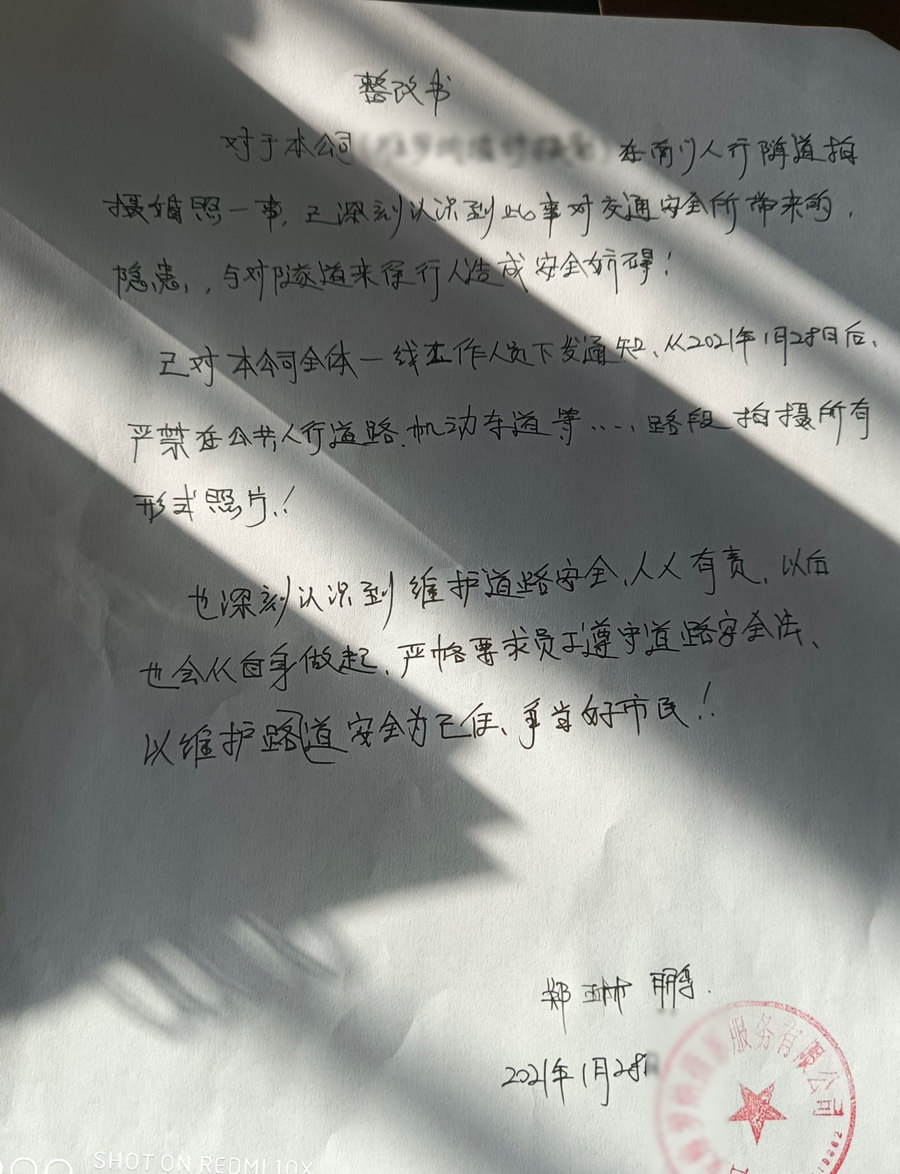 整改书
对于本公司 在南川人行隧道拍
摄婚照一事,已深刻认识到此事对交通安全所带来的,
隐患,,与对隧道来往行人造成安全妨碍!
已对本公司全体一线工作人员下发通知、从2021年1月28日后,
严禁在公共人行道路、机动车道等……路段拍摄所有
形式照片.!
也深刻认识到维护道路安全、人人有责,以后
也会从自身做起、严格要求员工遵守道路安全法、
以维护路道安全为己任、争当好市民!
郑琳鹏
2021年1月28
服务有限公司
SHOT ON REDMI 10X